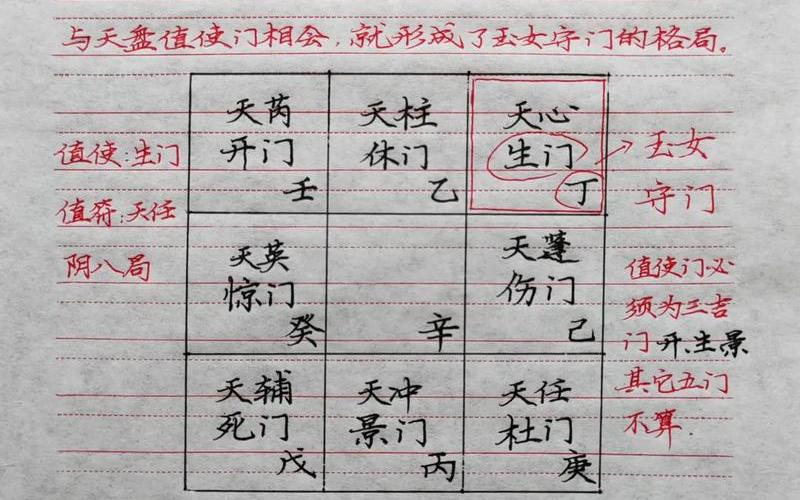 与天盘值使门相会，就形成了玉女守门的格局。
值使：生门
值符：天任
阴八局
天芮
开门
壬
天柱
休门
乙
天心
生门
丁
天英
惊门
癸
辛
天蓬
伤门
己
天辅
死门
戊
天冲
景门
丙
天任
杜门
庚
玉女
守门
值使门必
须为三吉
门开、生景
其它五门
不算.